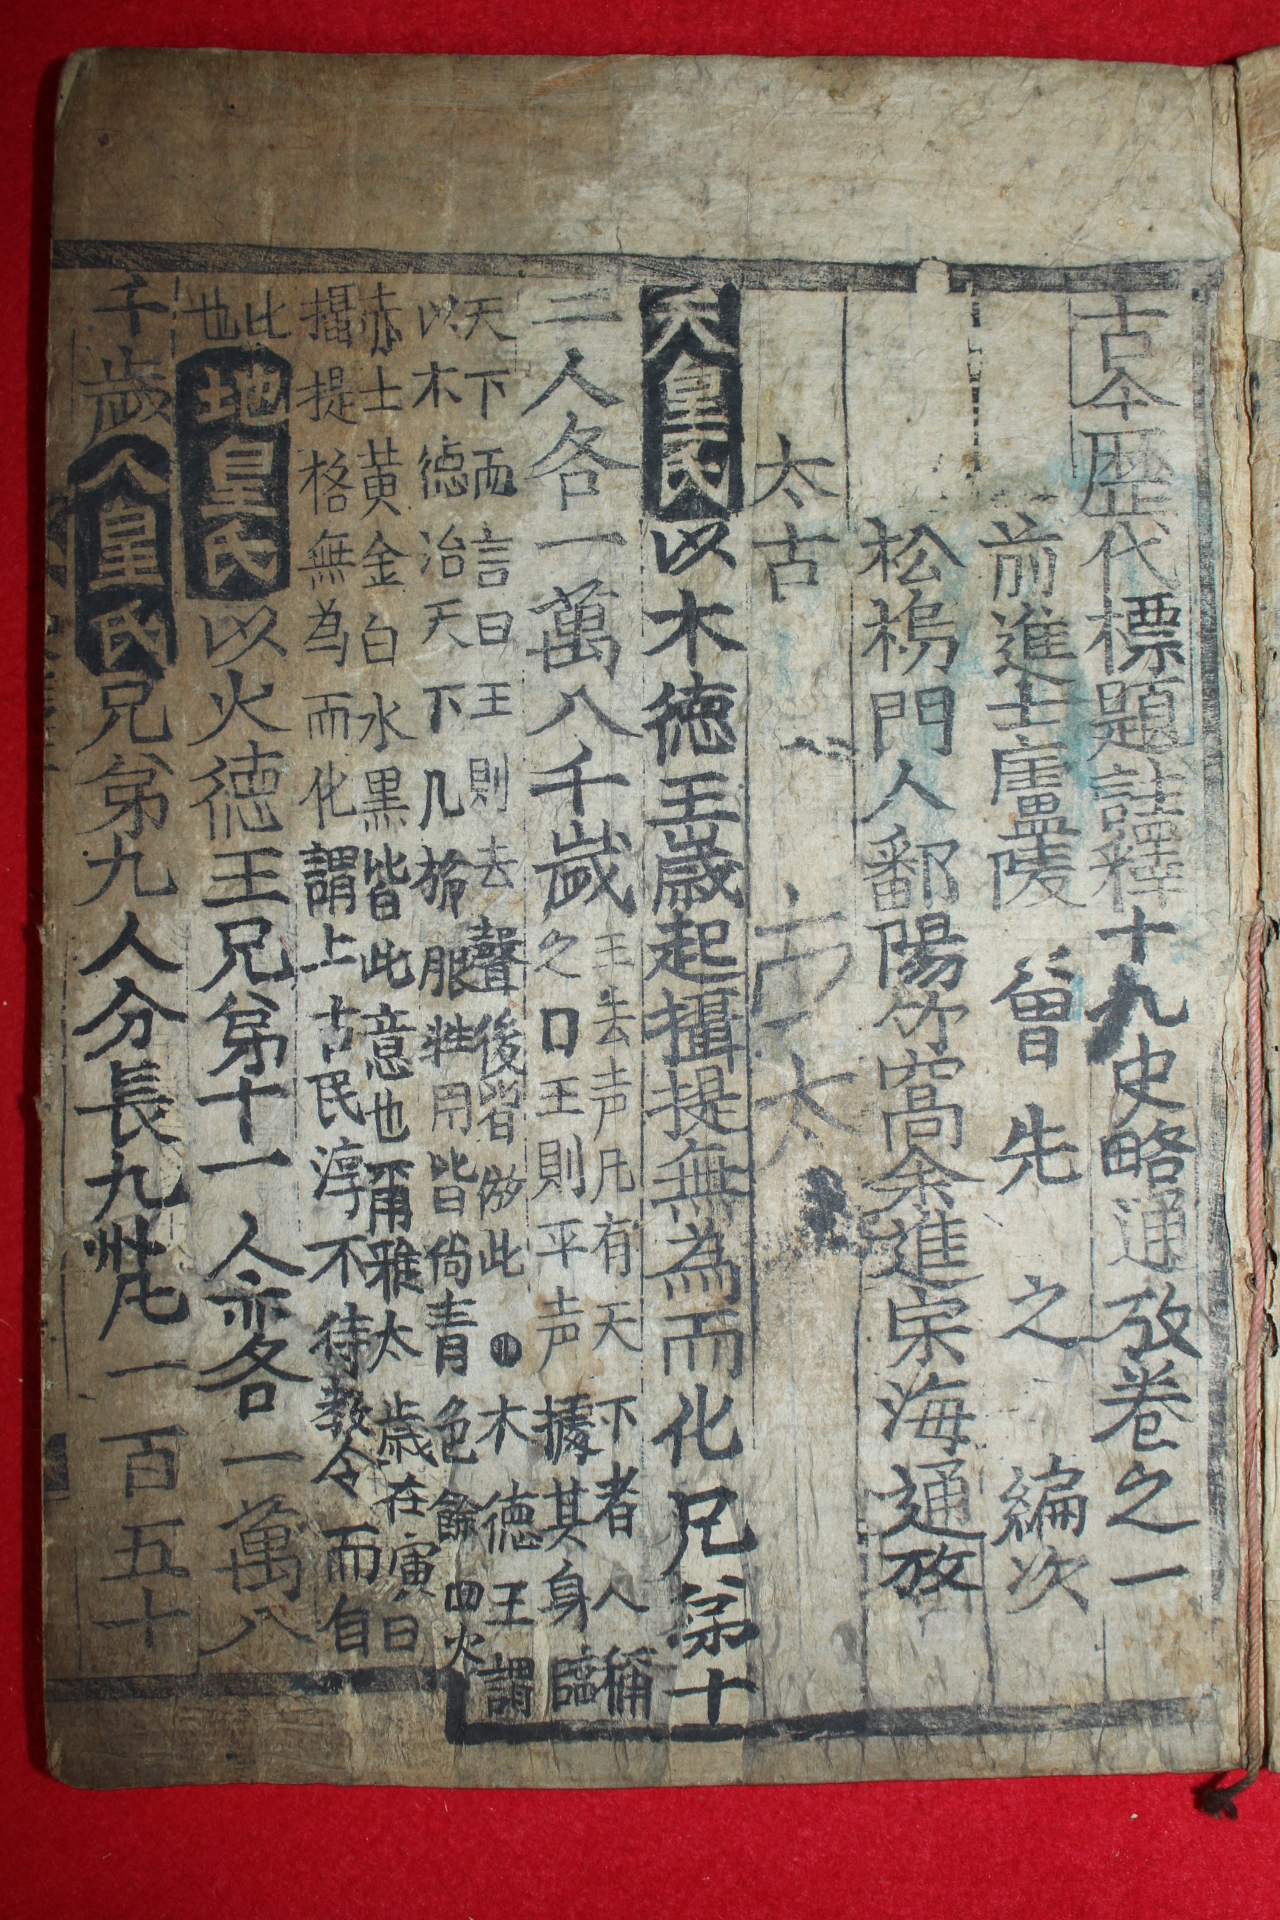 古今歴代標題註釋十九史略通攷卷之一
前進士廬陵曾先之編次
松塢門人鄱陽竹窩余進宋海通攷
太古
天皇氏以木徳王歲起攝提無為而化兄弟十
二人各一萬八千歲
王去声凡有天下者人稱
之曰王則平声據其身臨
天下而言曰王則去聲後皆倣此木徳王謂
以木徳治天下凡旂服牲用皆尙青色餘四火
赤土黃金白水黒皆此意也爾雅太歲在寅曰
攝提格無為而化謂上古民淳不待教令而自
化也
地皇氏以火徳王兄弟十一人亦各一萬八
千歲人皇氏兄弟九人分長九州凡一百五十